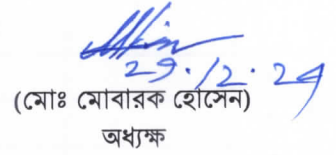 29.12.24
(মোঃ মোবারক হোসেন)
অধ্যক্ষ